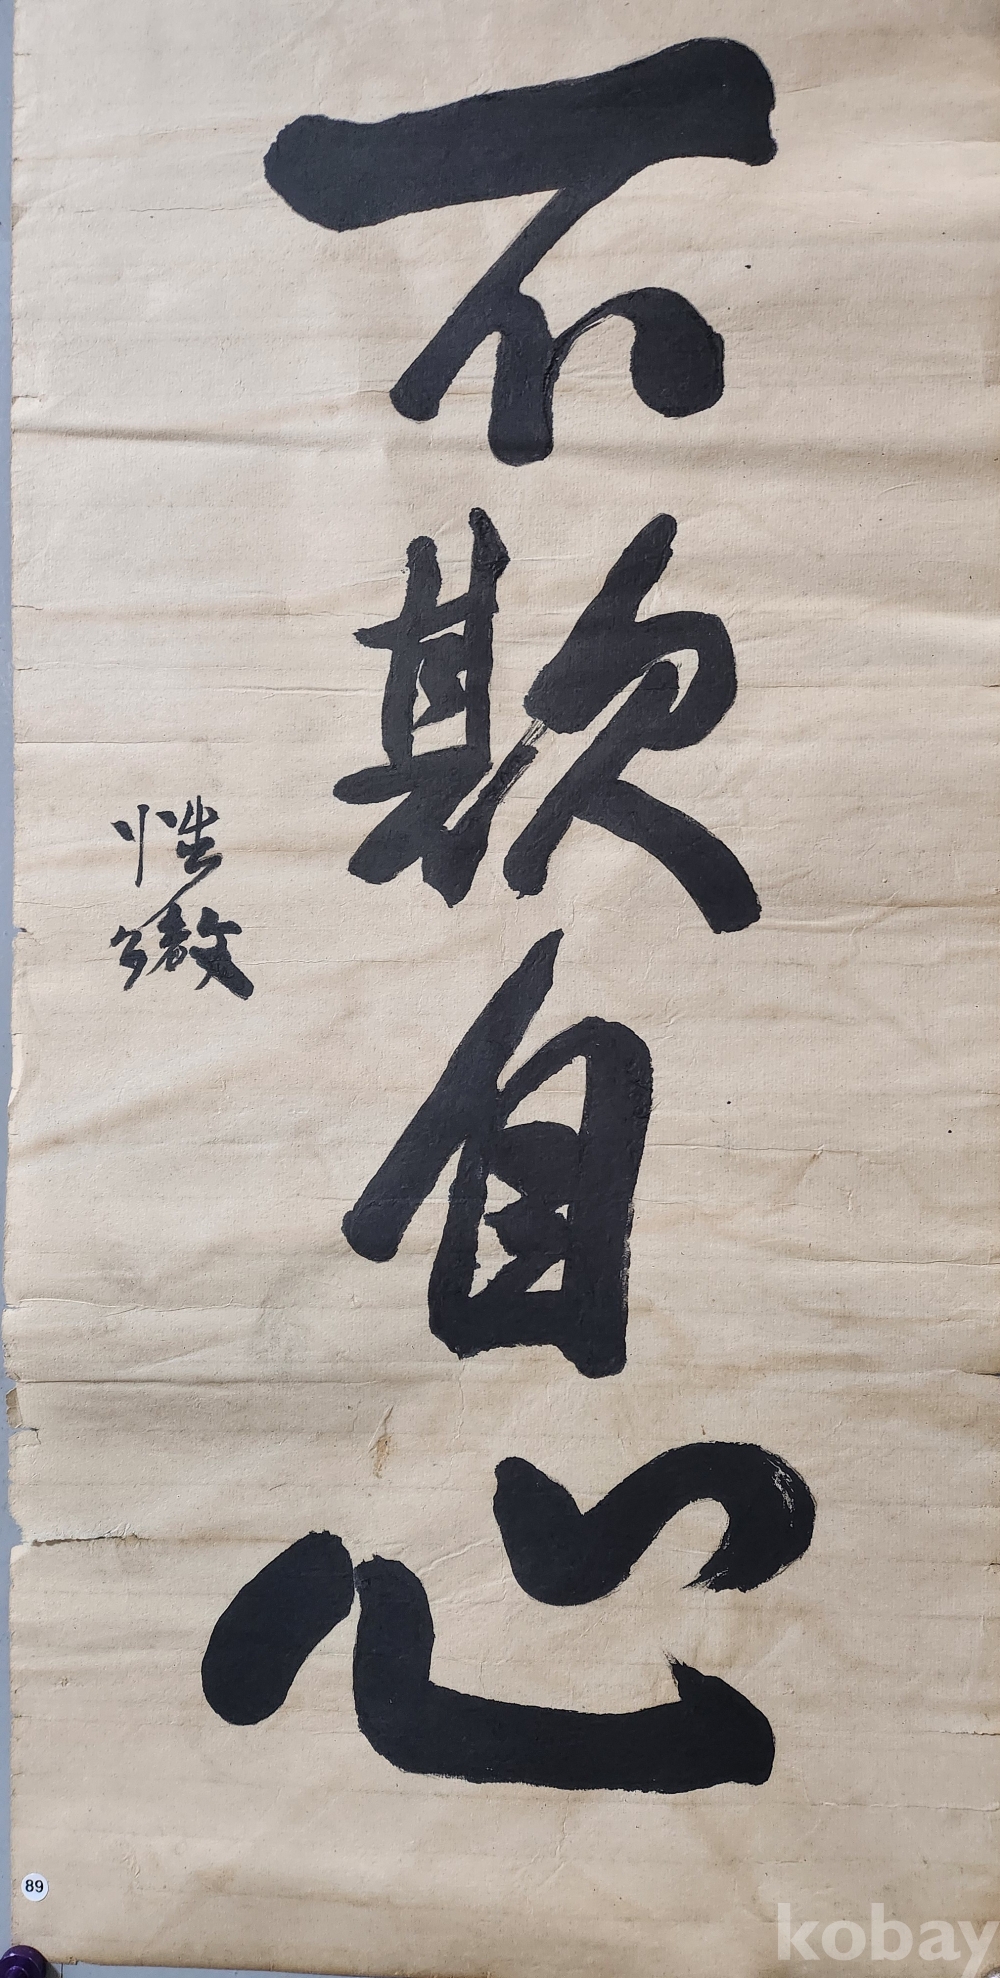 不欺自心
性徹
89
kobay